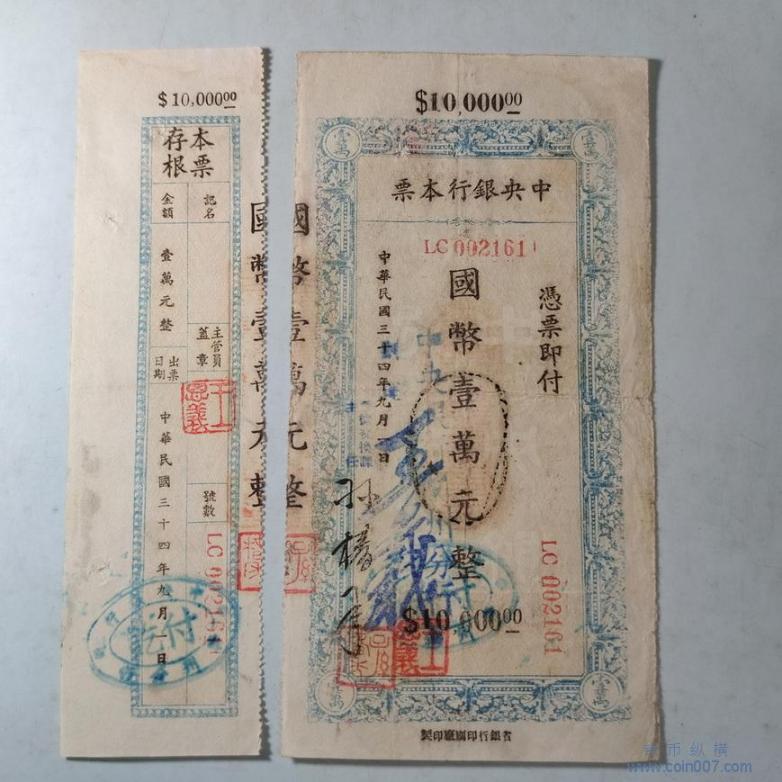 $10,00000
本票
存根
記名
金額
壹萬元整
主管員
蓋章
出票
日期
中華民國三十四年九月一日
號數
LC 002161
付訖
國幣壹萬元整
$10,00000
中央銀行本票
LC 002161
憑票即付
國幣壹萬元整
中華民國三十四年九月一日
中央
LC 002161
$10,00000
壹萬
壹萬
壹萬
壹萬
省銀行印刷廠印製
www.coin007.com